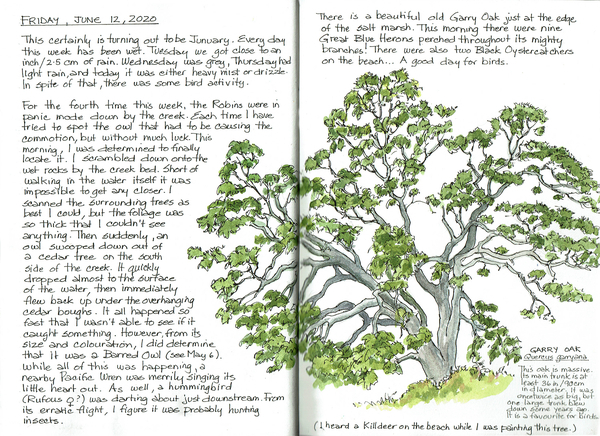 FRIDAY, JUNE 12, 2020
This certainly is turning out to be Junuary. Every day
this week has been wet. Tuesday we got close to an
inch/2.5 cm of rain. Wednesday was grey, Thursday had
light rain, and today it was either heavy mist or drizzle.
In spite of that, there was some bird activity.
For the fourth time this week, the Robins were in
panic mode down by the creek. Each time I have
tried to spot the owl that had to be causing the
commotion, but without much luck. This
morning, I was determined to finally
locate it. I scrambled down onto the
wet rocks by the creek bed. Short of
walking in the water itself it was
impossible to get any closer. I
scanned the surrounding trees as
best I could, but the foliage was
so thick that I couldn't see
anything. Then suddenly, an
owl swooped down out of
a cedar tree on the south
side of the creek. It quickly
dropped almost to the surface
of the water, then immediately
flew back up under the overhanging
cedar boughs. It all happened so
fast that I wasn't able to see if it
caught something. However, from its
size and colouration, I did determine
that it was a Barred Owl (see May 6).
While all of this was happening, a
nearby Pacific Wren was merrily singing its
little heart out. As well, a hummingbird
(Rufous ♀?) was darting about just downstream. From
its erratic flight, I figure it was probably hunting
insects.
There is a beautiful old Garry Oak just at the edge
of the salt marsh. This morning there were nine
Great Blue Herons perched throughout its mighty
branches! There were also two Black Oystercatchers
on the beach... A good day for birds.
GARRY OAK
Quercus garryana
This oak is massive.
Its main trunk is at
least 36 in/90cm
in diameter. It was
once twice as big, but
one large trunk blew
down some years ago.
It is a favourite for birds.
(I heard a Killdeer on the beach while I was painting this tree.)